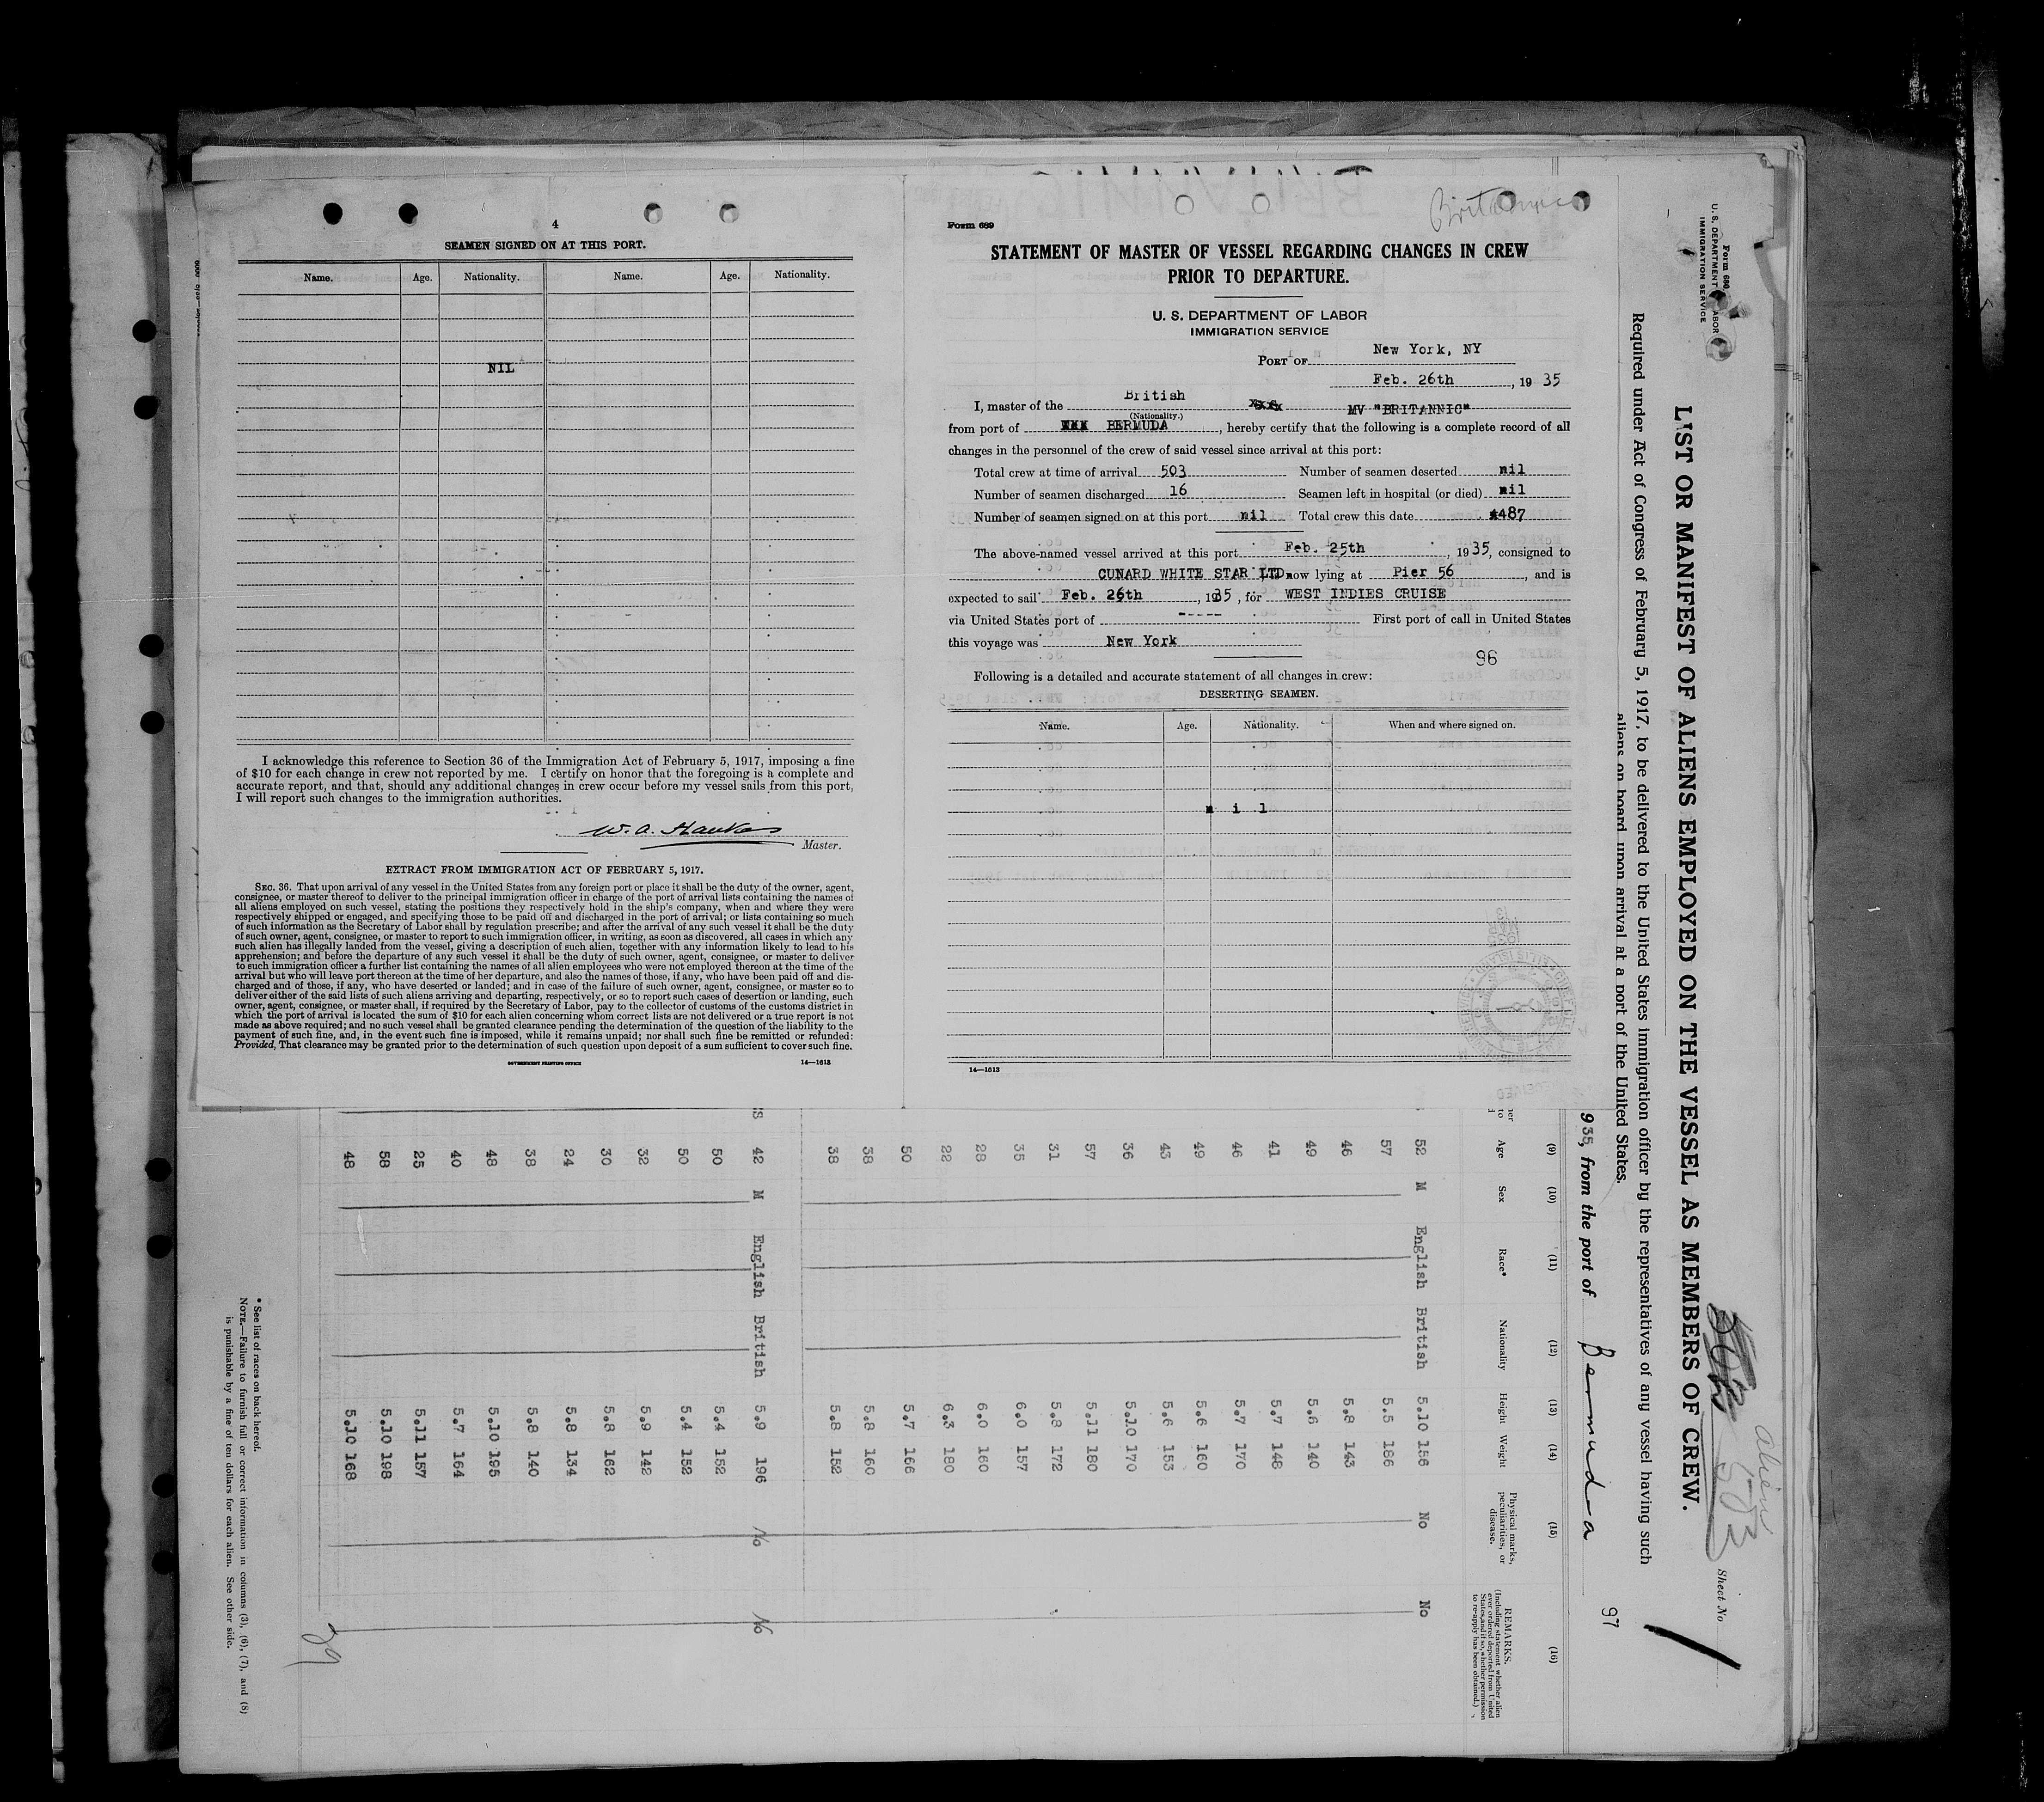 4
SEAMEN SIGNED ON AT THIS PORT.
Name. Age. Nationality. Name. Age. Nationality.
NIL
I acknowledge this reference to Section 36 of the Immigration Act of February 5, 1917, imposing a fine
of $10 for each change in crew not reported by me. I certify on honor that the foregoing is a complete and
accurate report, and that, should any additional changes in crew occur before my vessel sails from this port,
I will report such changes to the immigration authorities.
W. A. Hawkes
Master.
EXTRACT FROM IMMIGRATION ACT OF FEBRUARY 5, 1917.
SEC. 36. That upon arrival of any vessel in the United States from any foreign port or place it shall be the duty of the owner, agent,
consignee, or master thereof to deliver to the principal immigration officer in charge of the port of arrival lists containing the names of
all aliens employed on such vessel, stating the positions they respectively hold in the ship's company, when and where they were
respectively shipped or engaged, and specifying those to be paid off and discharged in the port of arrival; or lists containing so much
of such information as the Secretary of Labor shall by regulation prescribe; and after the arrival of any such vessel it shall be the duty
of such owner, agent, consignee, or master to report to such immigration officer, in writing, as soon as discovered, all cases in which any
such alien has illegally landed from the vessel, giving a description of such alien, together with any information likely to lead to his
apprehension; and before the departure of any such vessel it shall be the duty of such owner, agent, consignee, or master to deliver
to such immigration officer a further list containing the names of all alien employees who were not employed thereon at the time of the
arrival but who will leave port thereon at the time of her departure, and also the names of those, if any, who have been paid off and dis-
charged and of those, if any, who have deserted or landed; and in case of the failure of such owner, agent, consignee, or master so to
deliver either of the said lists of such aliens arriving and departing, respectively, or so to report such cases of desertion or landing, such
owner, agent, consignee, or master shall, if required by the Secretary of Labor, pay to the collector of customs of the customs district in
which the port of arrival is located the sum of $10 for each alien concerning whom correct lists are not delivered or a true report is not
made as above required; and no such vessel shall be granted clearance pending the determination of the question of the liability to the
payment of such fine, and, in the event such fine is imposed, while it remains unpaid; nor shall such fine be remitted or refunded:
Provided, That clearance may be granted prior to the determination of such question upon deposit of a sum sufficient to cover such fine.
GOVERNMENT PRINTING OFFICE 14—1613
Britannic
Form 689
STATEMENT OF MASTER OF VESSEL REGARDING CHANGES IN CREW
PRIOR TO DEPARTURE.
U. S. DEPARTMENT OF LABOR
IMMIGRATION SERVICE
PORT OF New York, NY
Feb. 26th, 1935
I, master of the British xxx MV "BRITANNIC"
(Nationality.)
from port of xxx BERMUDA, hereby certify that the following is a complete record of all
changes in the personnel of the crew of said vessel since arrival at this port:
Total crew at time of arrival 503 Number of seamen deserted nil
Number of seamen discharged 16 Seamen left in hospital (or died) nil
Number of seamen signed on at this port nil Total crew this date 487
The above-named vessel arrived at this port Feb. 25th, 1935, consigned to
CUNARD WHITE STAR LTD now lying at Pier 56, and is
expected to sail Feb. 26th, 1935, for WEST INDIES CRUISE
via United States port of ----- First port of call in United States
this voyage was New York
96
Following is a detailed and accurate statement of all changes in crew:
DESERTING SEAMEN.
Name. Age. Nationality. When and where signed on.
n i l
14—1613
Form 680
U. S. DEPARTMENT LABOR
IMMIGRATION SERVICE
LIST OR MANIFEST OF ALIENS EMPLOYED ON THE VESSEL AS MEMBERS OF CREW.
alien
503
Sheet No
Required under Act of Congress of February 5, 1917, to be delivered to the United States immigration officer by the representatives of any vessel having such
aliens on board upon arrival at a port of the United States.
97
935, from the port of Bermuda
(9) (10) (11) (12) (13) (14) (15) (16)
Age Sex Race* Nationality Height Weight Physical marks, peculiarities, or disease. REMARKS. (Including statement whether alien ever ordered deported from United States, and if so, whether permission to re-apply has been obtained.)
52 M English British 5.10 156 No No
57 5.5 186
46 5.8 143
49 5.6 140
41 5.7 148
46 5.7 170
49 5.6 160
43 5.6 153
36 5.10 170
57 5.11 180
31 5.8 172
35 6.0 157
28 6.0 160
22 6.3 180
50 5.7 166
38 5.8 160
38 5.8 152
42 M English British 5.9 196 No No
50 5.4 152
50 5.4 152
32 5.9 142
30 5.8 162
24 5.8 134
38 5.8 140
48 5.10 195
40 5.7 164
25 5.11 157
58 5.10 198
48 5.10 168
29
* See list of races on back hereof.
NOTE.—Failure to furnish full or correct information in columns (3), (6), (7), and (8)
is punishable by a fine of ten dollars for each alien. See other side.